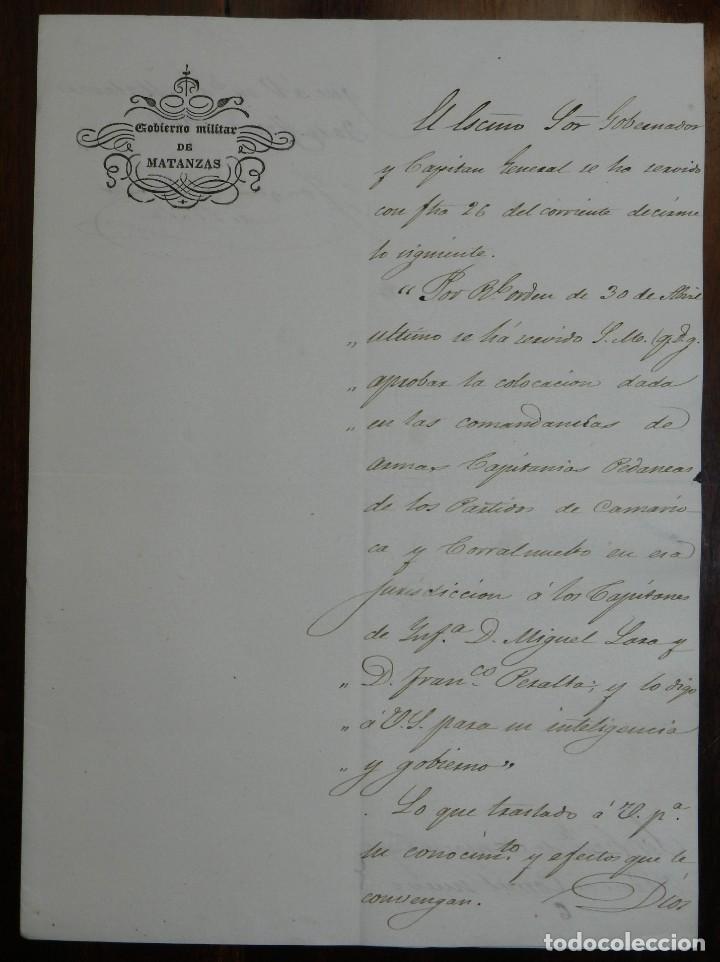 Gobierno militar
DE
MATANZAS
El Escmo Sor Gobernador
y Capitan General se ha servido
con fha 26 del corriente decirme
lo siguiente.
"Por Rl orden de 30 de Abril
" ultimo se há servido S. M. (q. D. g.
" aprobar la colocacion dada
" en las comandancias de
armas Capitanias Pedaneas
de los Partidos de Camario
ca y Corralnuebo en esa
jurisdiccion á los Capitanes
de Inf.a D. Miguel Lara y
" D. Fran.co Peralta; y lo digo
" á V.S. para su inteligencia
" y gobierno"
Lo que traslado á V. p.a
su conocim.to y efectos que le
convengan. Dios
todocoleccion
todocoleccion.net